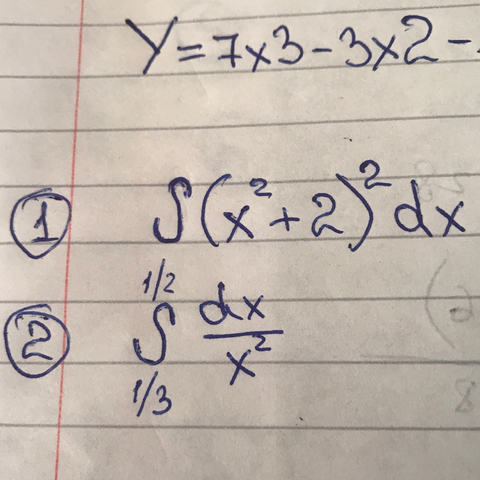 Y=7x3-3x2-
① ∫(x²+2)² dx
② ∫_{1/3}^{1/2} dx/x²